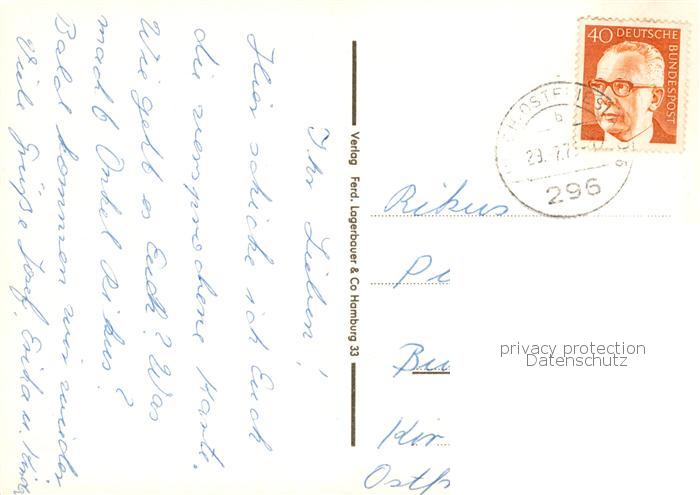 Ihr Lieben!
Hier schicke ich Euch
die versprochene Karte.
Wie geht es Euch? Was
mach Onkel Rikus?
Bald kommen wir wieder
Viele Grüße Josef, Erika u. Kinder
Verlag Ferd. Lagerbauer & Co Hamburg 33
40 DEUTSCHE BUNDESPOST
29.7.7
296
Rikus
Pi
Bu
Kir
Ostf
privacy protection
Datenschutz